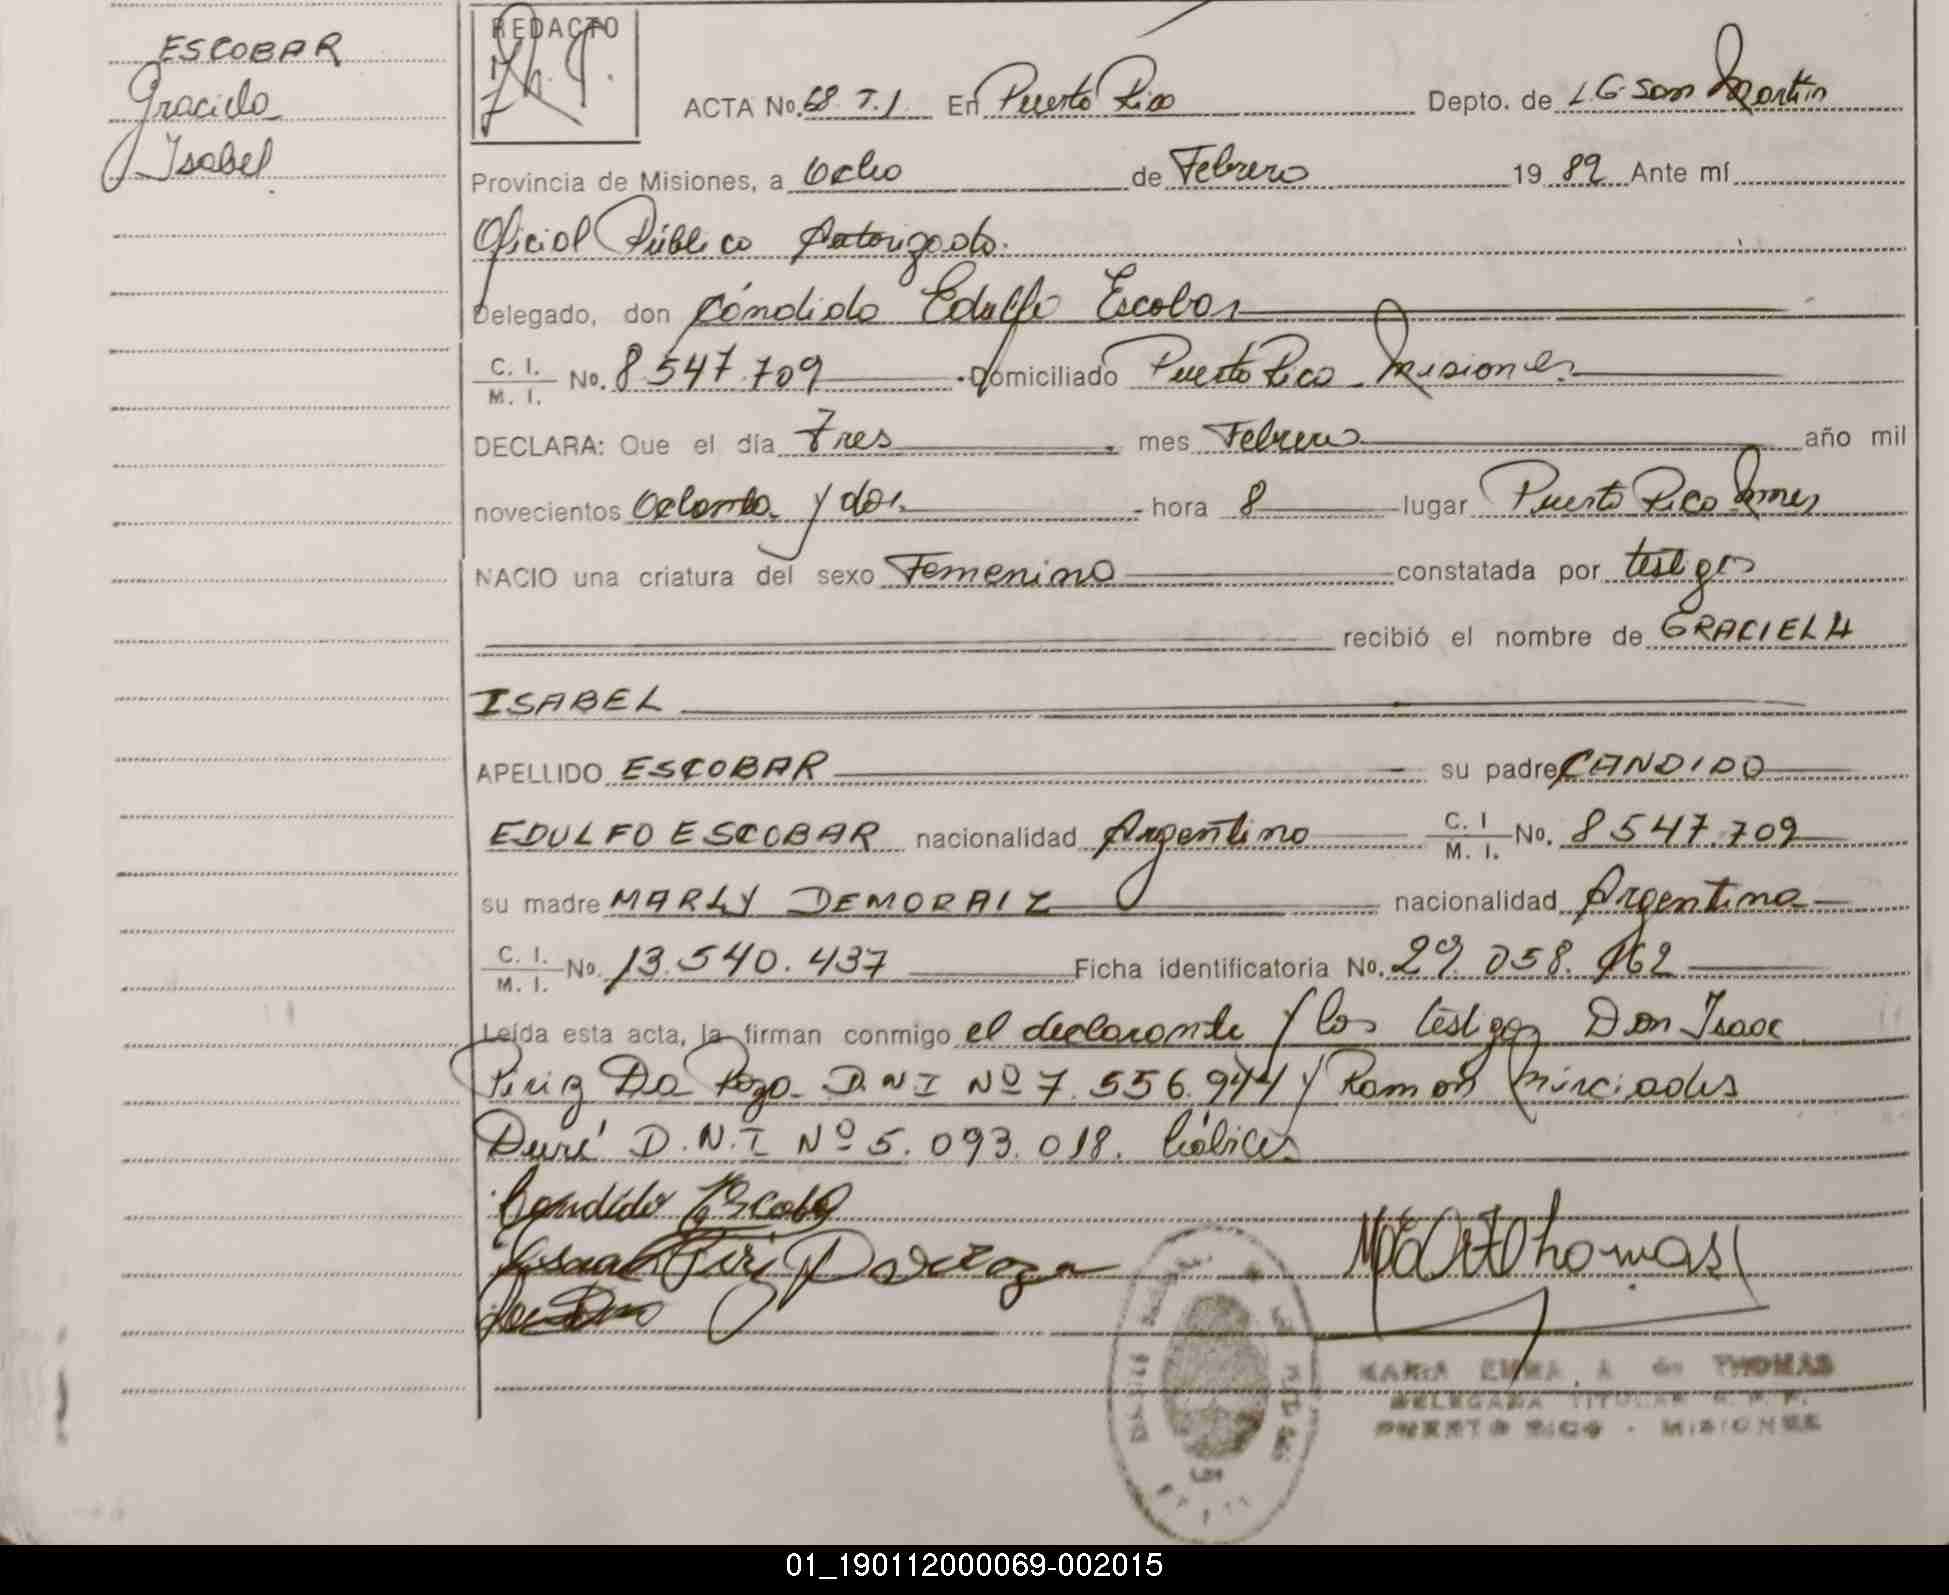 ESCOBAR
Graciela
Isabel
REDACTO
ACTA No. 68 T.1. En Puerto Rico Depto. de L.G. San Martín
Provincia de Misiones, a Ocho de Febrero 19 82 Ante mí
Oficial Público Autorizado.
Delegado, don Cándido Edulfo Escobar
C. I. / M. I. No. 8547.709 Domiciliado Puerto Rico Misiones
DECLARA: Que el día Tres mes Febrero año mil
novecientos Ochenta y dos hora 8 lugar Puerto Rico Mnes
NACIO una criatura del sexo Femenino constatada por testigos
recibió el nombre de GRACIELA
ISABEL
APELLIDO ESCOBAR su padre CANDIDO
EDULFO ESCOBAR nacionalidad Argentino C. I / M. I. No. 8547.709
su madre MARLY DEMORAIZ nacionalidad Argentina
C. I. / M. I. No. 13.540.437 Ficha identificatoria No. 29.058.162
Leída esta acta, la firman conmigo el declarante y los testigos Don Isaac
Piriz Da Roza D.N.I Nº 7.556.944 y Ramón Mirciades
Duré D.N.I Nº 5.093.018. hábiles
Candido Escobar
Isaac Piriz Da Roza
MARIA EMMA A. de THOMAS
DELEGADA TITULAR R. P. P.
PUERTO RICO - MISIONES
01_190112000069-002015